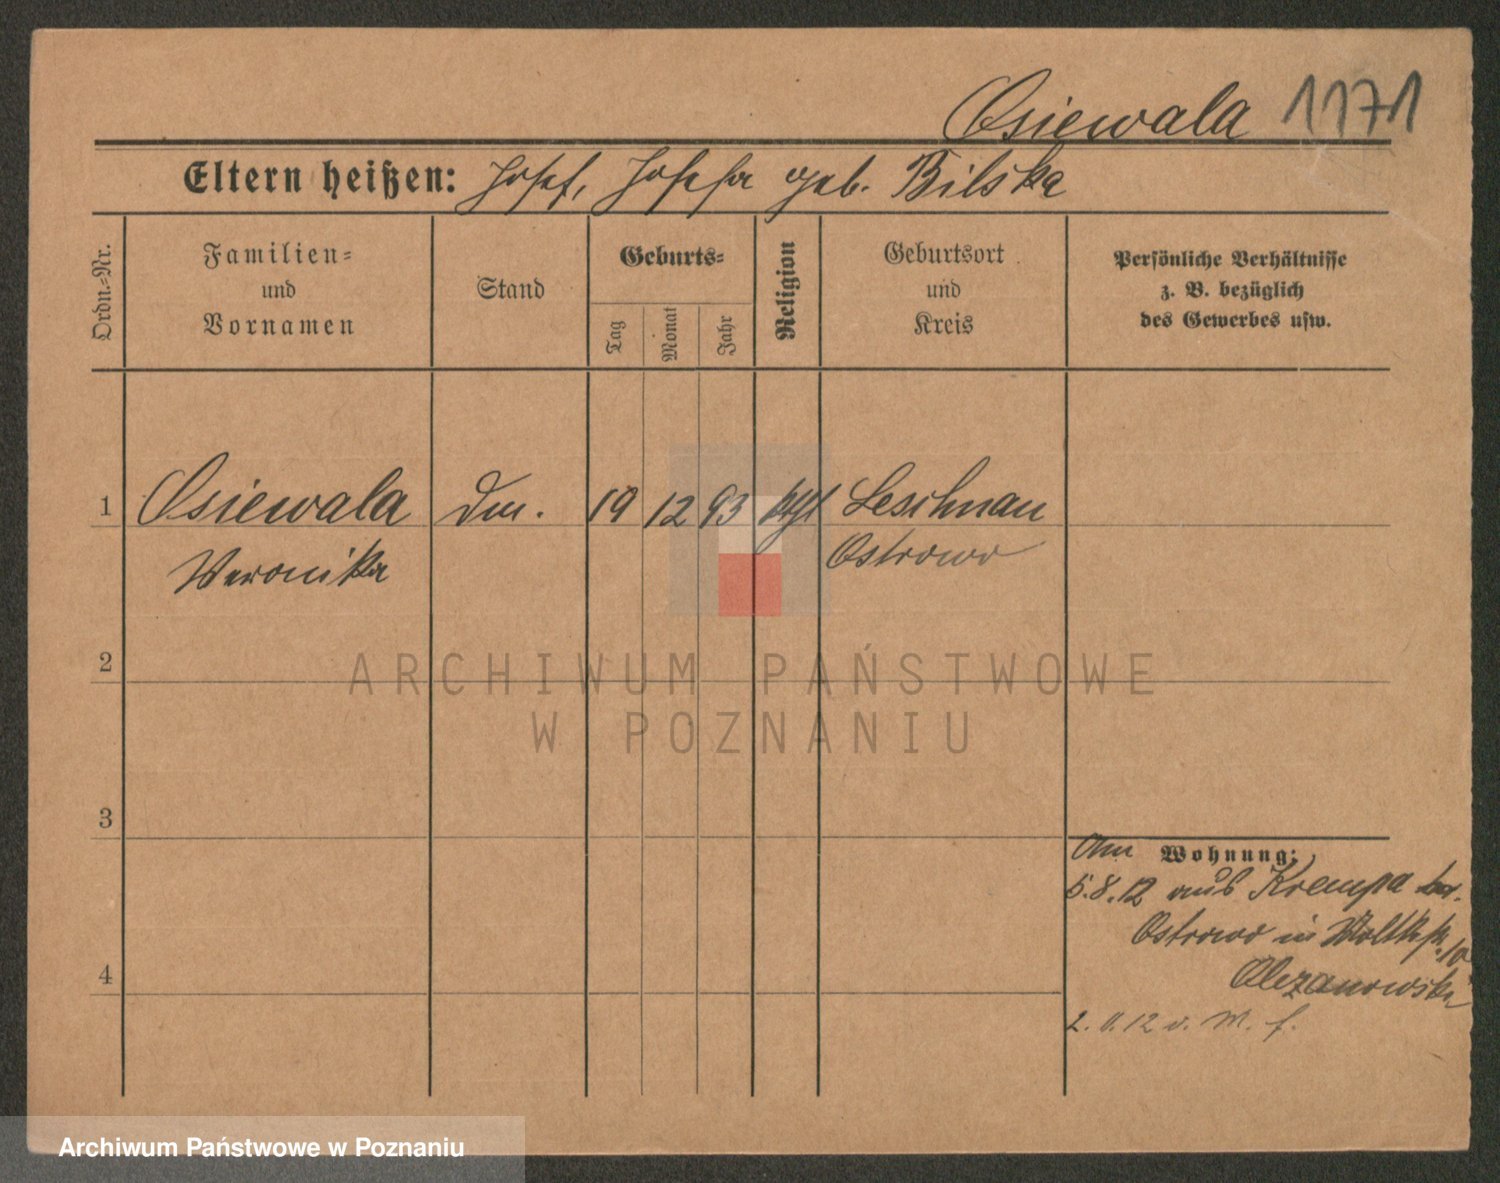 Osiewala 1171
Eltern heißen: Josef, Josefa geb. Bilska
Ordn.-Nr.
Familien-
und
Vornamen
Stand
Geburts-
Tag
Monat
Jahr
Religion
Geburtsort
und
Kreis
Persönliche Verhältnisse
z. B. bezüglich
des Gewerbes usw.
1 Osiewala 19 12 93 ktgl Leschnau
Veronika Ostrowo
2
ARCHIWUM PAŃSTWOWE
W POZNANIU
3
Wohnung:
5.8.12 aus Krempa
Ostrowo in
4
2. 12 v.
Archiwum Państwowe w Poznaniu